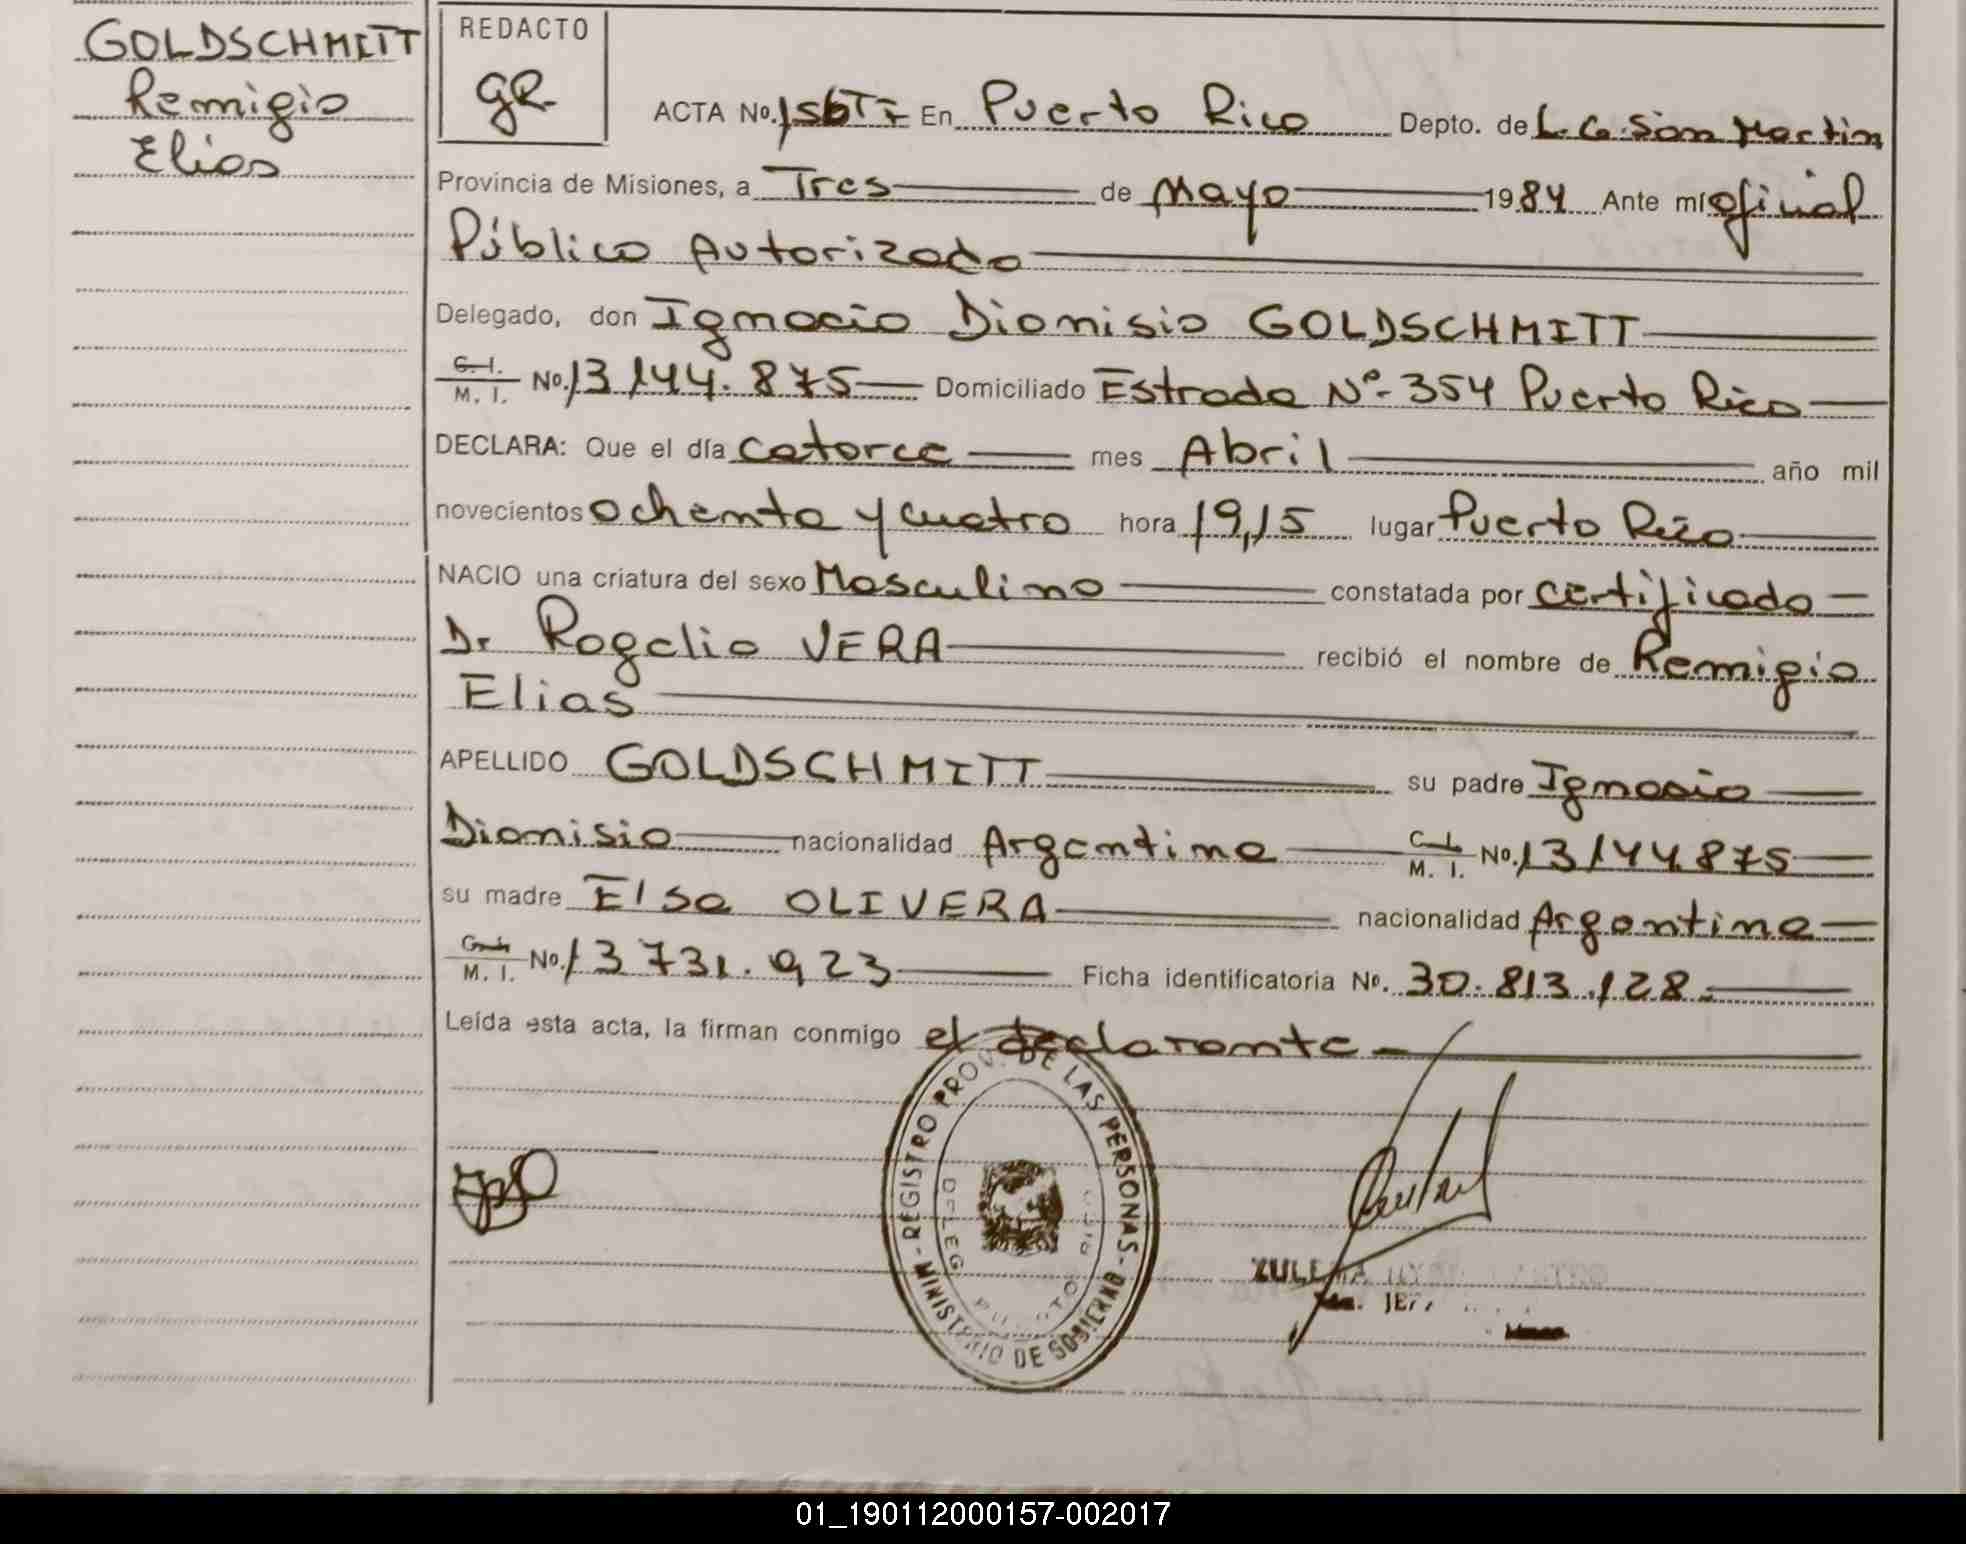 GOLDSCHMITT
Remigio
Elias
REDACTO
GR
ACTA No. 156 Tº I En Puerto Rico Depto. de L. G. San Martin
Provincia de Misiones, a Tres de Mayo 1984 Ante mí oficial
Público Autorizado
Delegado, don Ignacio Dionisio GOLDSCHMITT
C. I. M. I. No. 13144.875 Domiciliado Estrada Nº 354 Puerto Rico
DECLARA: Que el día catorce mes Abril año mil
novecientos ochenta y cuatro hora 19,15 lugar Puerto Rico
NACIO una criatura del sexo Masculino constatada por certificado
Dr Rogelio VERA recibió el nombre de Remigio
Elias
APELLIDO GOLDSCHMITT su padre Ignacio
Dionisio nacionalidad Argentina C. I. M. I. No. 13144.875
su madre Elsa OLIVERA nacionalidad Argentina
C. I. M. I. No. 13731.923 Ficha identificatoria No. 30.813.128.
Leída esta acta, la firman conmigo el declarante
MINISTERIO DE GOBIERNO - REGISTRO PROV. DE LAS PERSONAS
DELEG PUERTO RICO
ZULEMA
01_190112000157-002017